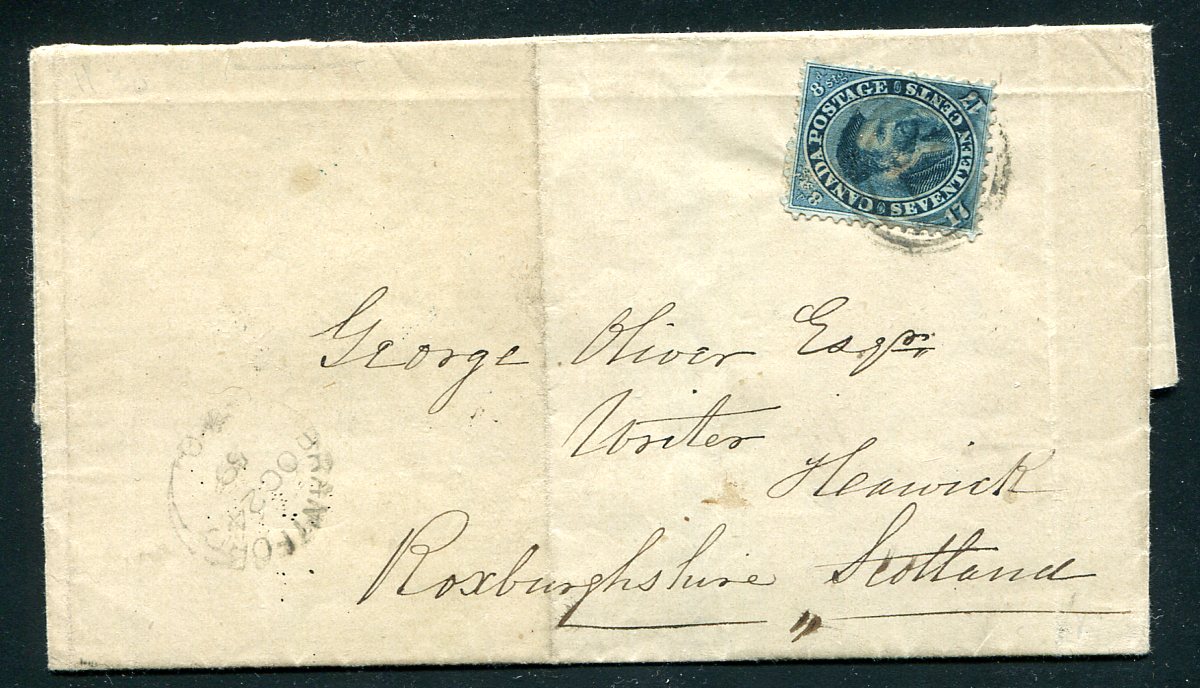 CANADA POSTAGE
SEVENTEEN CENTS
17
17
8
8
George Oliver Esqr.
Writer
Heawick
Roxburghshire Scotland
BRANTFORD
OC 2